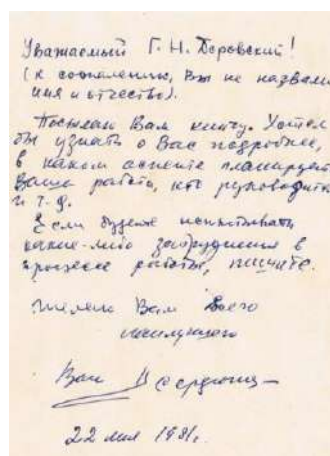 Уважаемый Г. Н. Боровский!
(к сожалению, Вы не назвали
имя и отчество).
Посылаю Вам книгу. Хотел
бы узнать о Вас подробнее,
в каком аспекте планируете
Ваша работа, кто руководитель
и т. д.
Если будете испытывать
какие-либо затруднения в
процессе работы, пишите.
Желаю Вам всего
наилучшего
Ваш
22 мая 1981г.